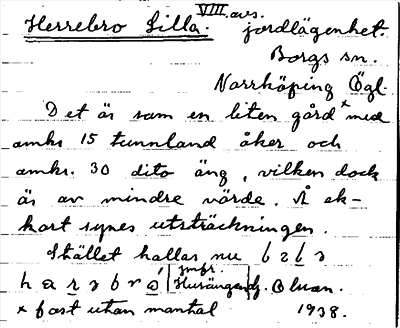 VIII. avs.
Herrebro Lilla. jordlägenhet.
Borgs sn.
Norrköping Ögl.
Det är som en liten gård x med
omkr 15 tunnland åker och
omkr. 30 dito äng, vilken dock
är av mindre värde. Å ek-
kart synes utsträckningen.
Stället kallas nu
jmfr.
Husängen
x fast utan mantal 1938.